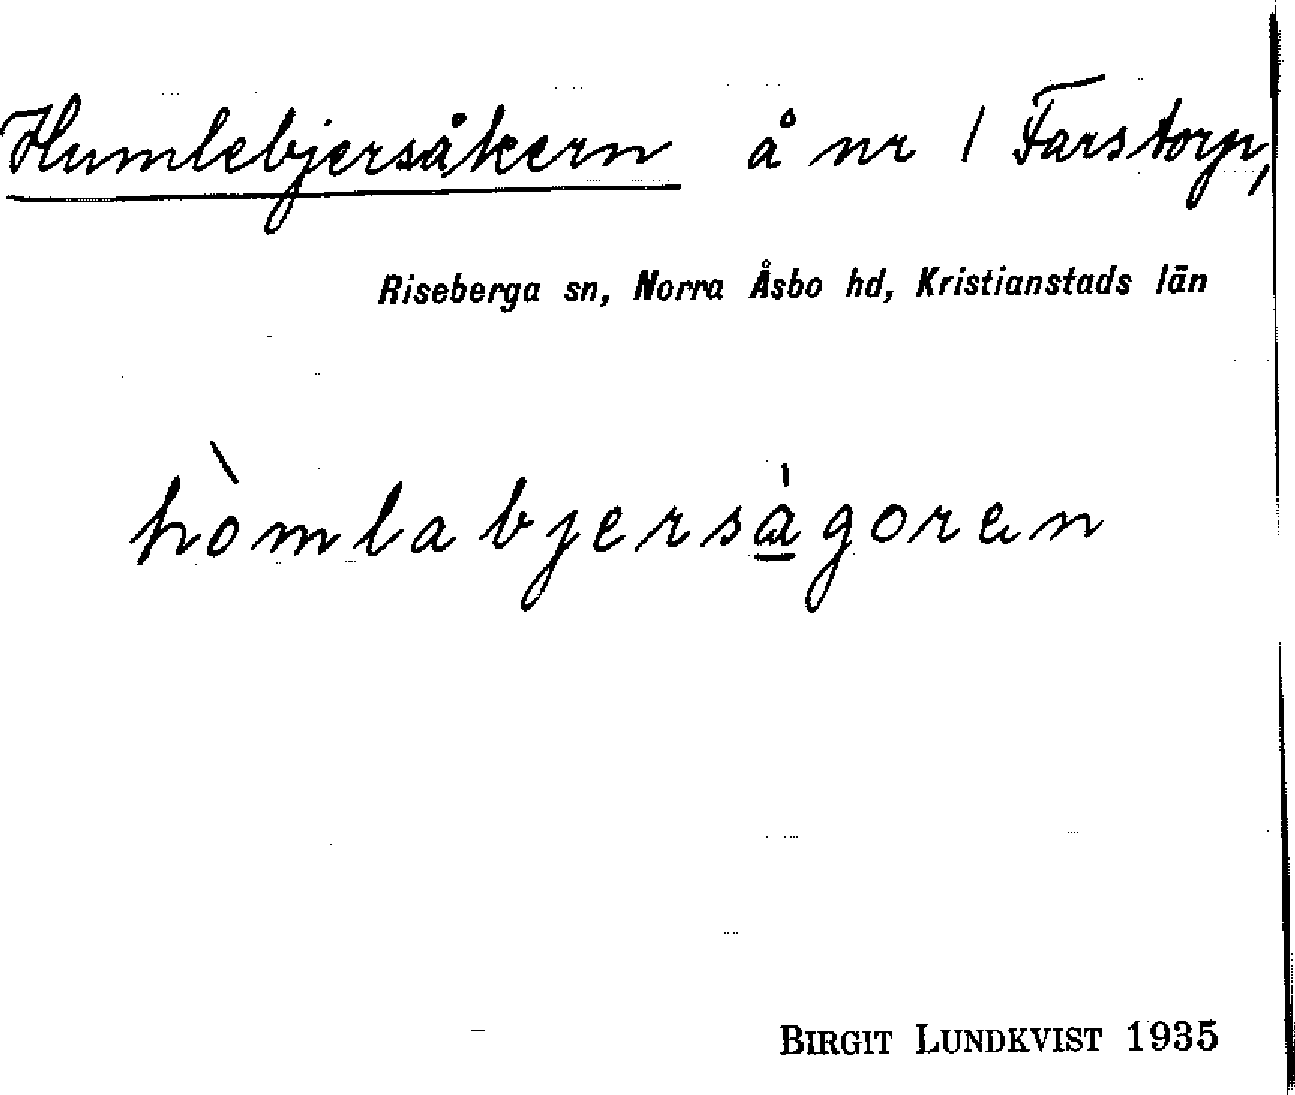 Humlebjersåkern å nr 1 Farstorp,
Riseberga sn, Norra Åsbo hd, Kristianstads län
hòmlabjersàgoren
BIRGIT LUNDKVIST 1935